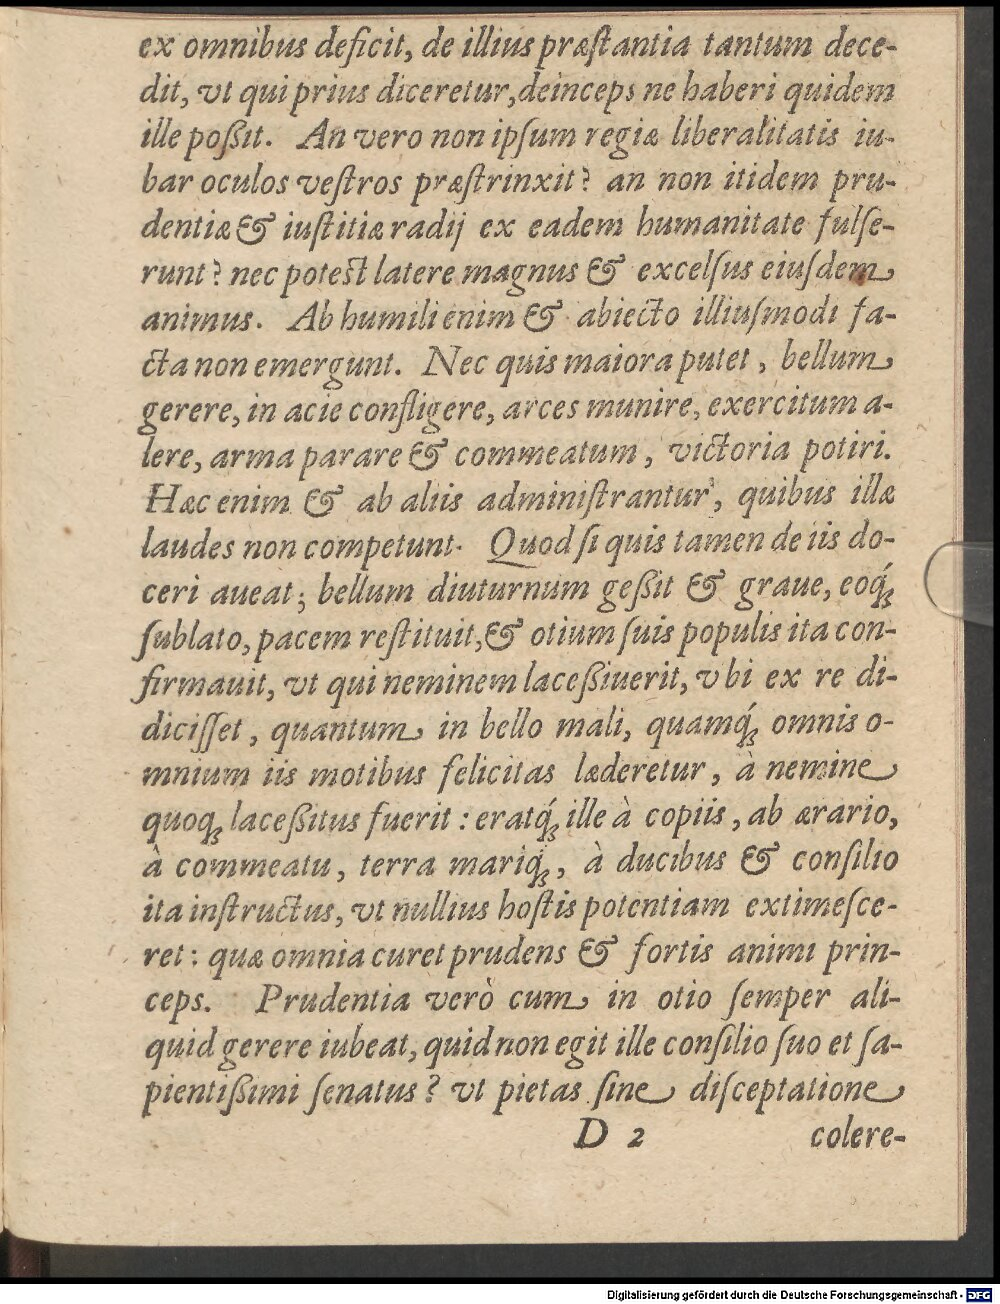 ex omnibus deficit, de illius præſtantia tantum dece-
dit, vt qui prius diceretur, deinceps ne haberi quidem
ille poßit. An vero non ipſum regiæ liberalitatis iu-
bar oculos veſtros præſtrinxit? an non itidem pru-
dentiæ & iuſtitiæ radij ex eadem humanitate fulſe-
runt? nec poteſt latere magnus & excelſus eiuſdem
animus. Ab humili enim & abiecto illiuſmodi fa-
cta non emergunt. Nec quis maiora putet, bellum
gerere, in acie confligere, arces munire, exercitum a-
lere, arma parare & commeatum, victoria potiri.
Hæc enim & ab aliis adminiſtrantur, quibus illæ
laudes non competunt. Quod ſi quis tamen de iis do-
ceri aueat; bellum diuturnum geßit & graue, eoq́ꝫ
ſublato, pacem reſtituit, & otium ſuis populis ita con-
firmauit, vt qui neminem laceßiuerit, vbi ex re di-
diciſſet, quantum in bello mali, quamq́ꝫ omnis o-
mnium iis motibus felicitas læderetur, à nemine
quoqꝫ laceßitus fuerit: eratq́ꝫ ille à copiis, ab ærario,
à commeatu, terra mariq́ꝫ, à ducibus & conſilio
ita inſtructus, vt nullius hoſtis potentiam extimeſce-
ret: quæ omnia curet prudens & fortis animi prin-
ceps. Prudentia verò cum in otio ſemper ali-
quid gerere iubeat, quid non egit ille conſilio ſuo et ſa-
pientißimi ſenatus? vt pietas ſine diſceptatione
D 2 colere-
Digitalisierung gefördert durch die Deutsche Forschungsgemeinschaft - DFG